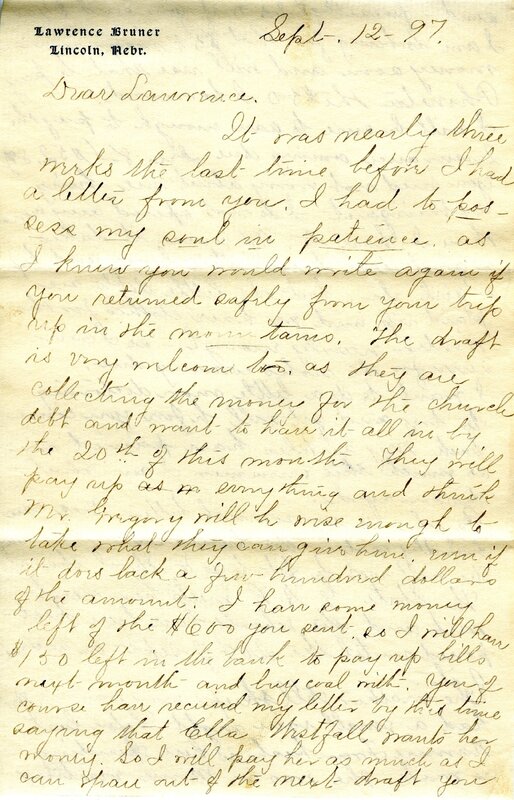 Lawrence Bruner
Lincoln, Nebr.
Sept. 12-97.
Dear Lawrence.
It was nearly three
weeks the last time before I had
a letter from you. I had to pos-
sess my soul in patience, as
I knew you would write again if
you returned safely from your trip
up in the mountains. The draft
is very welcome too, as they are
collecting the money for the church
debt and want to have it all in by
the 20th of this month. They will
pay up as on everything and think
Mr. Gregory will be wise enough to
take what they can give him, even if
it does lack a few hundred dollars
of the amount. I have some money
left of the $600 you sent, so I will have
$150 left in the bank to pay up bills
next month and buy coal with. You of
course have received my letter by this time
saying that Ella Westfall wants her
money. So I will pay her as much as I
can spare out of the next draft you